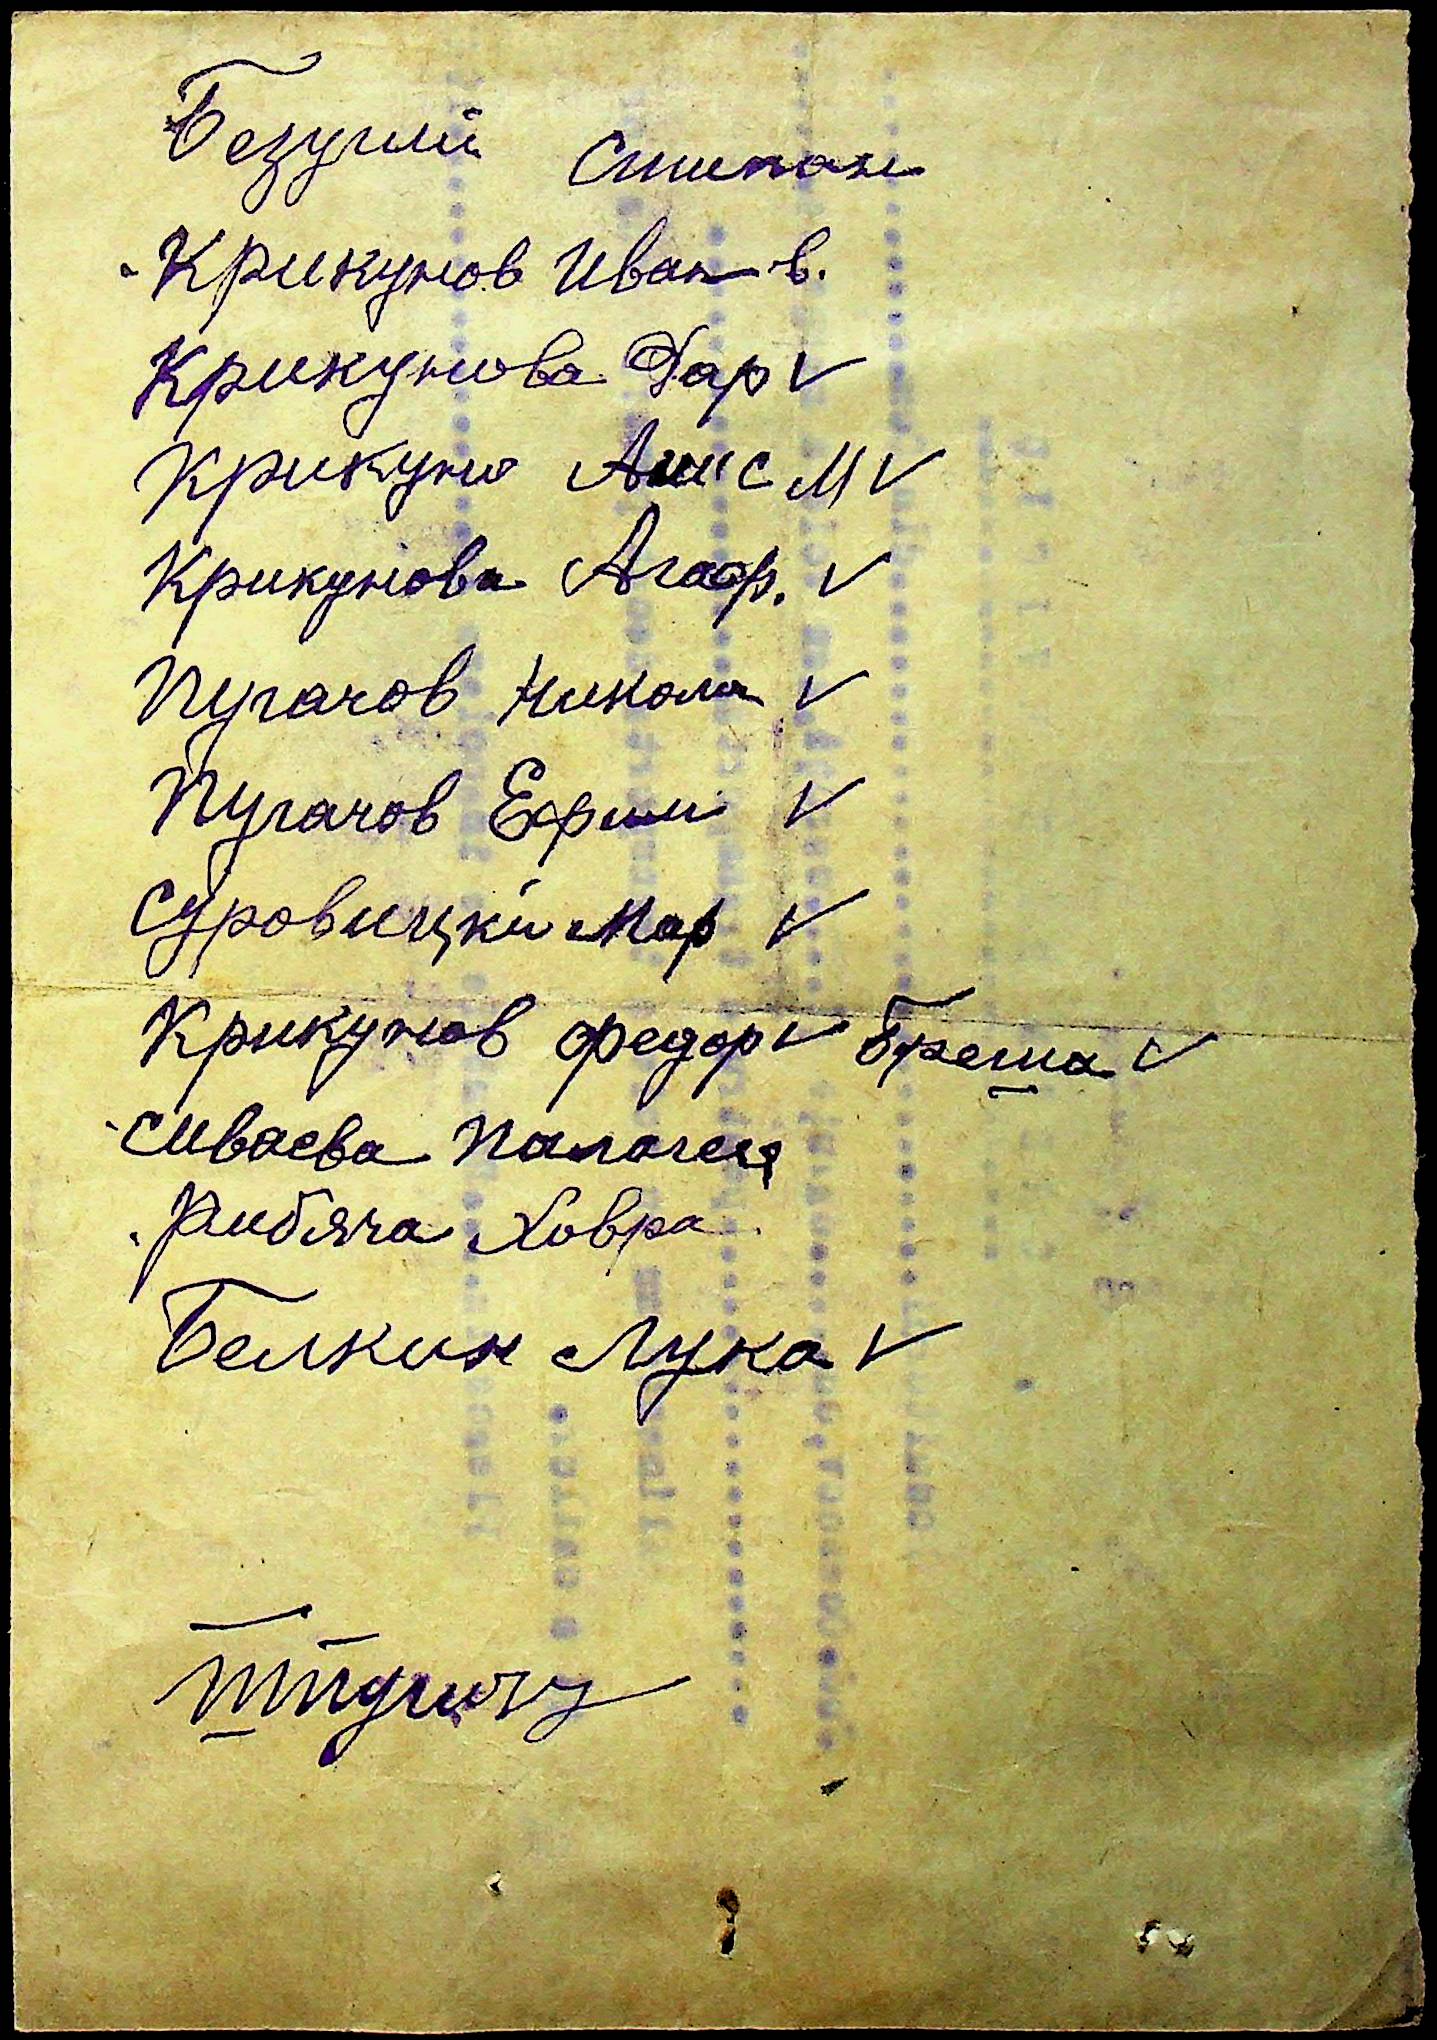 Безуглий Стипан
Крикунов Иван в.
Крикунова Дар ✓
Крикуно М ✓
Крикунова Агаф. ✓
Пугачов Никола ✓
Пугачов Ефим ✓
Суровицкій Мар ✓
Крикунов Федор ✓ Бреша ✓
Сиваева Палагея
Рибяча Ховра
Белкин Лука ✓